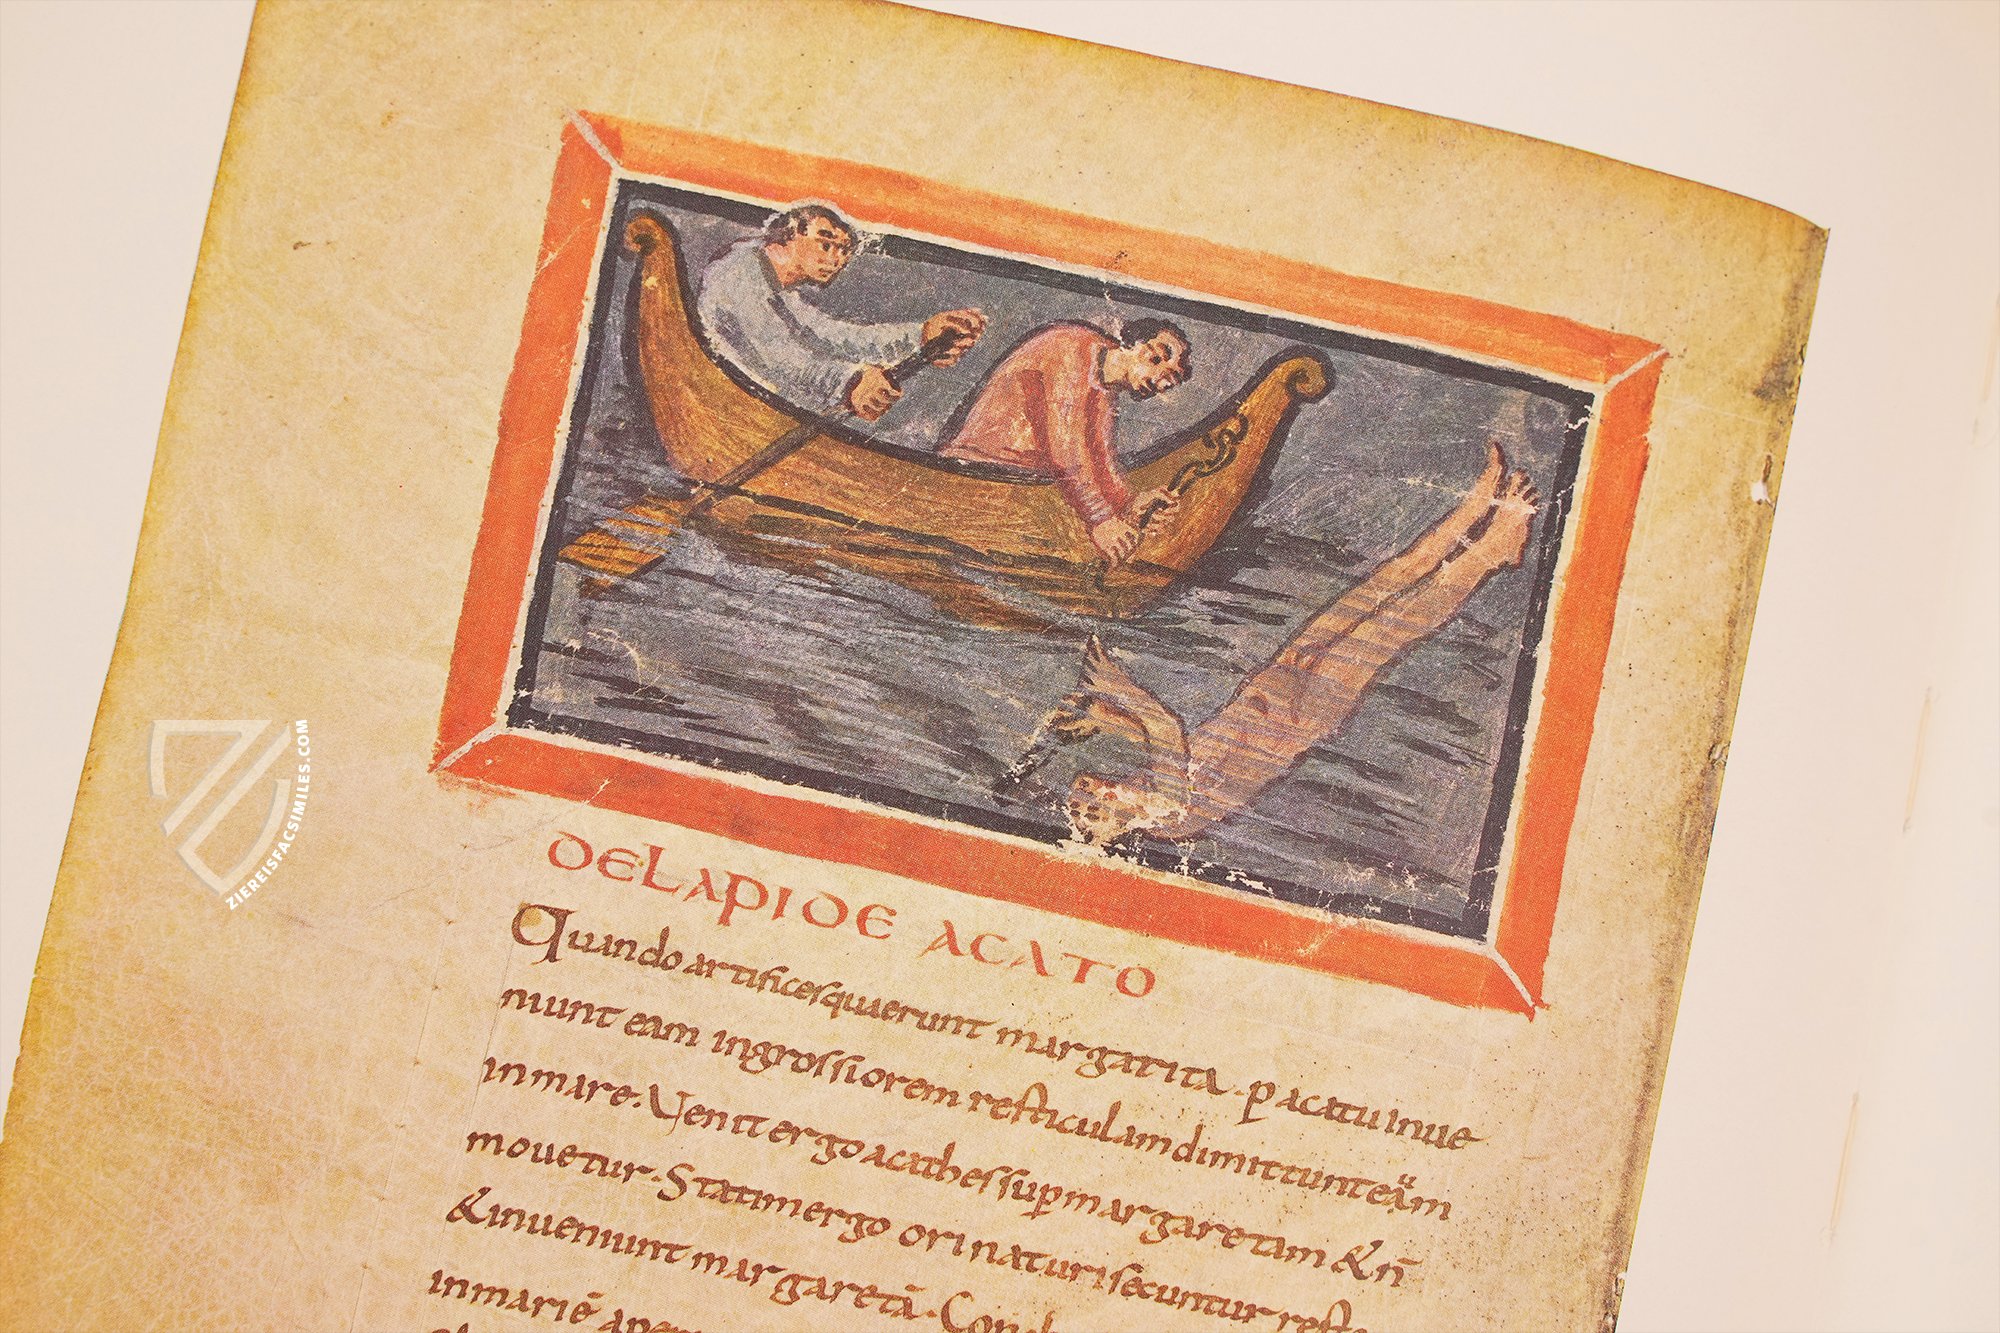 DE LAPIDE ACATO
Quando artifices quaerunt margarita · p̲ acatu inue
niunt eam in grossiorem resticulam dimittunt eam
in mare. Venit ergo acathes sup̲ margaretam & ñ
mouetur · Statim ergo orinaturi secuntur resti
& inueniunt margaretā · Con
in mari ē
ZIEREISFACSIMILES.COM